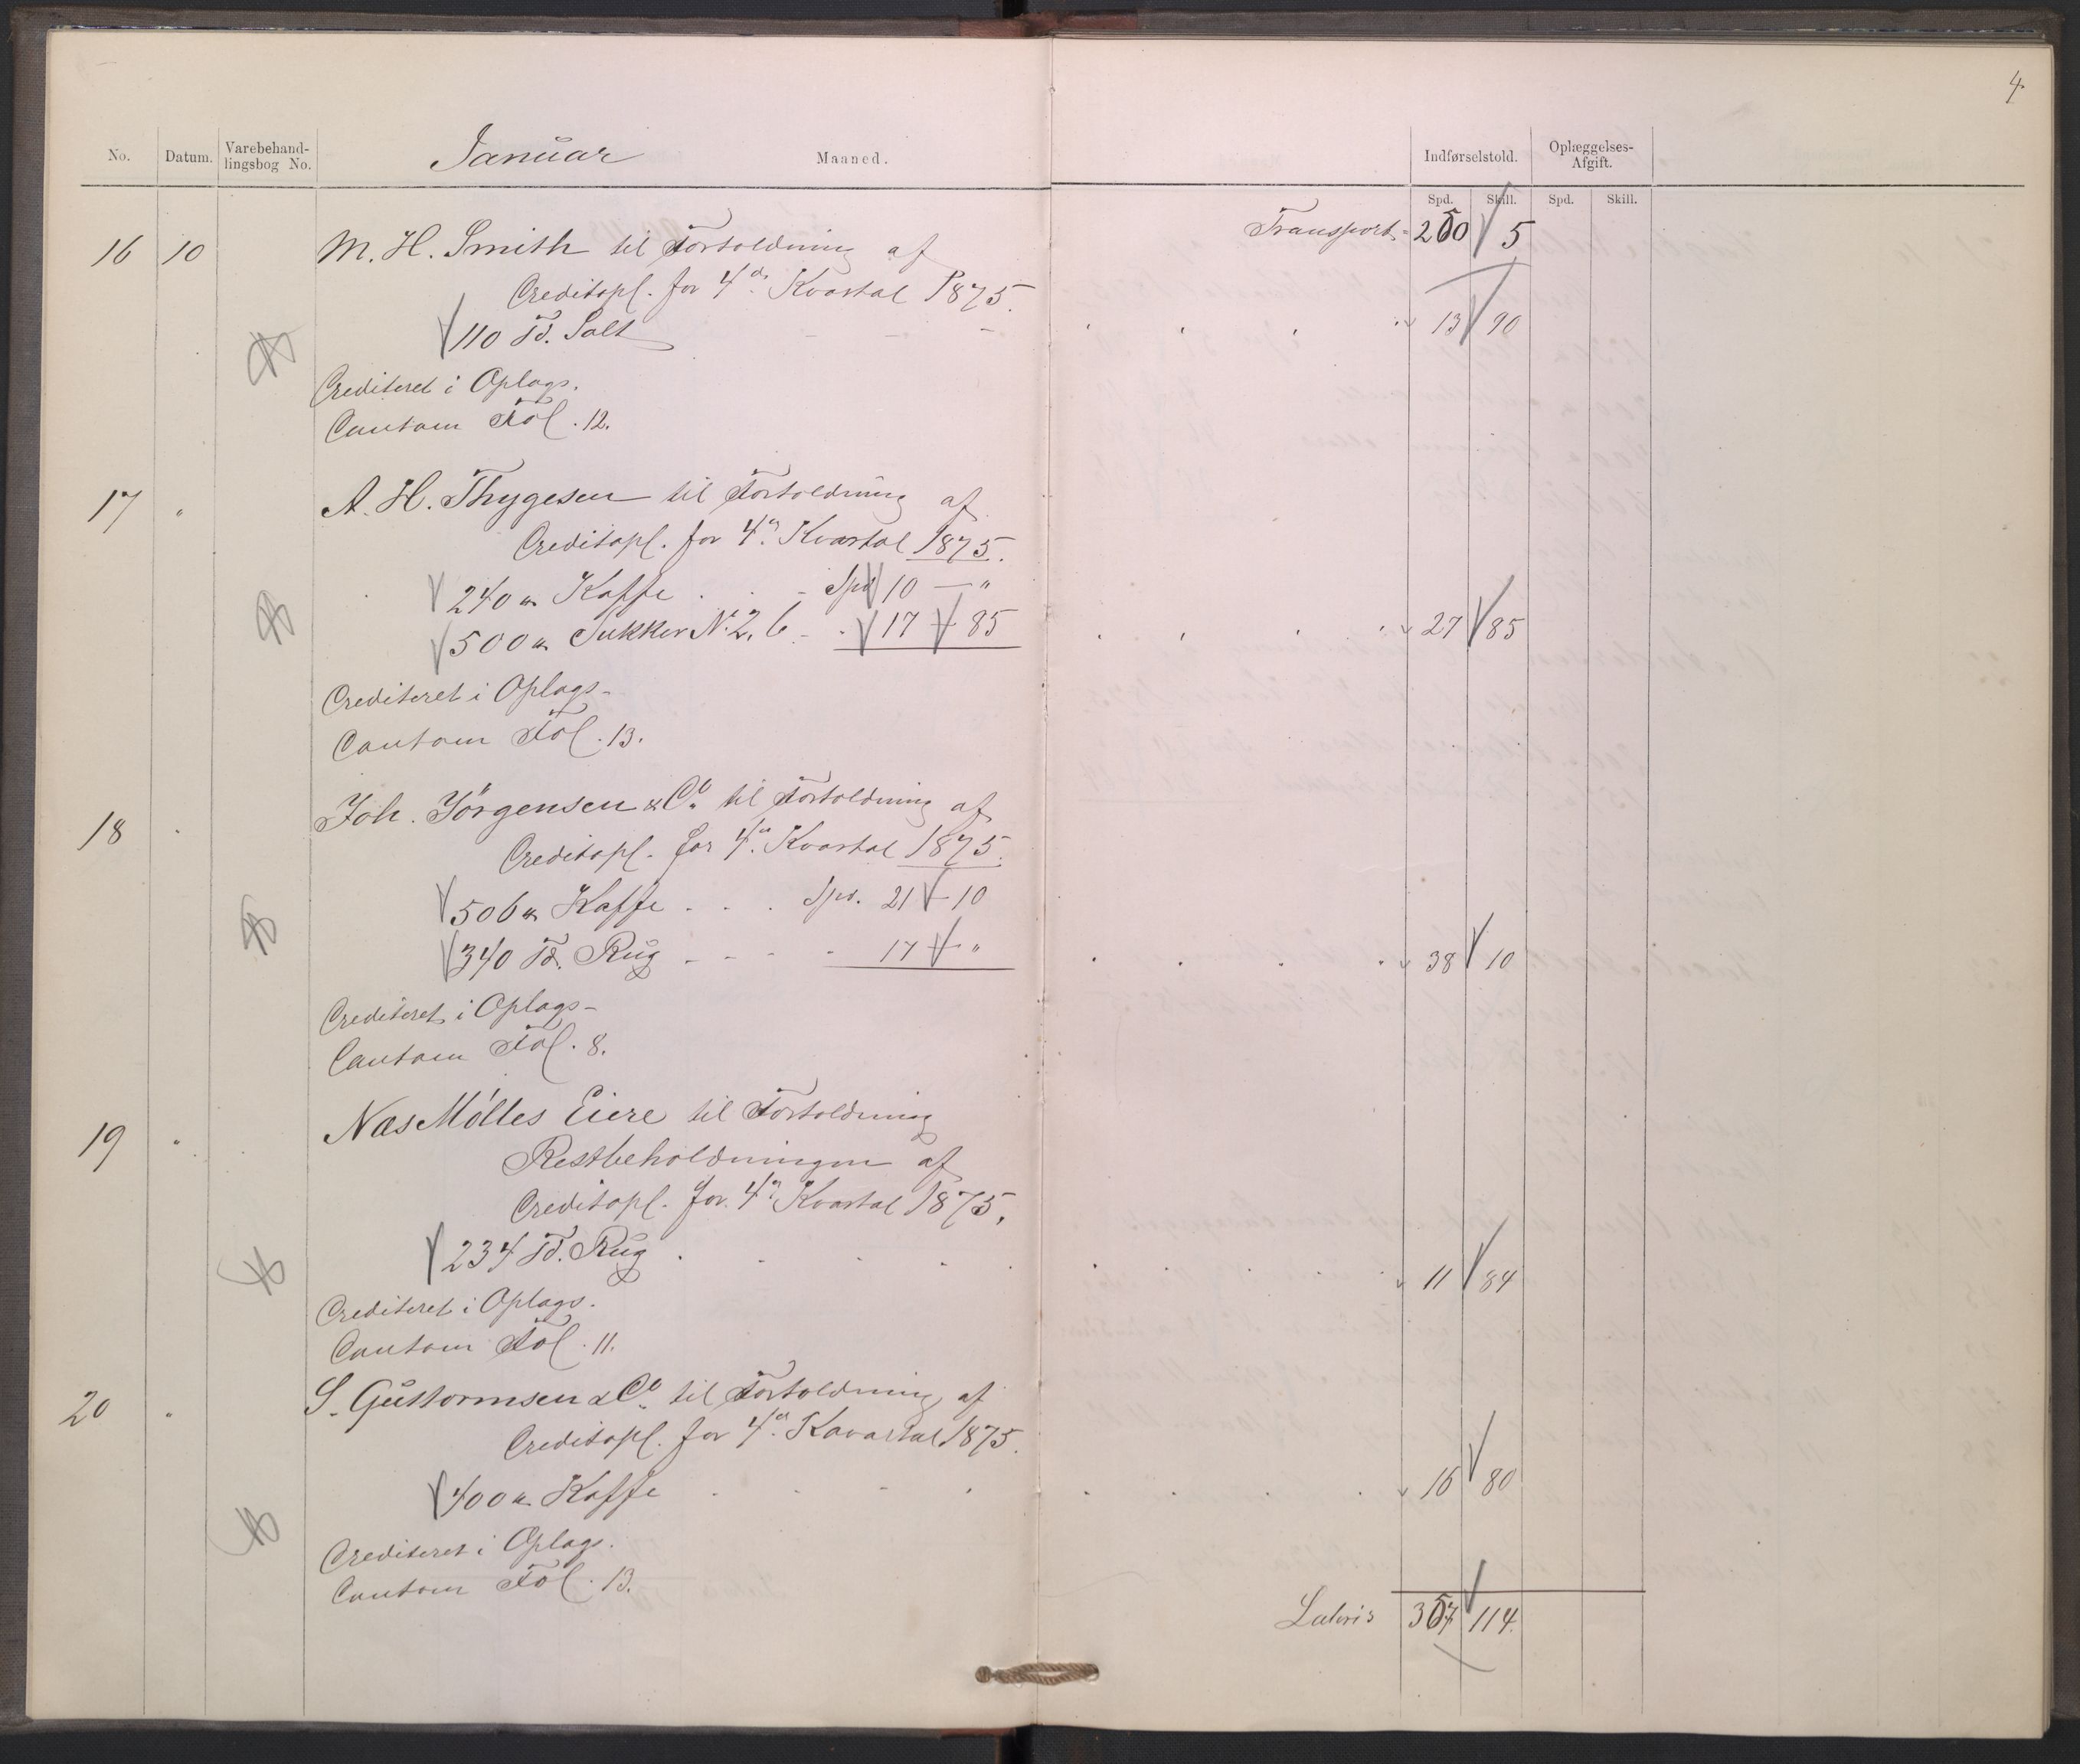 4
No. Datum. Varebehand-lingsbog No. Januar Maaned. Indførselstold. Oplæggelses-Afgift.
Spd. Skill. Spd. Skill.
Transport 250 5
16 10 M. H. Smith til Fortoldning af
Creditopl. for 4de Kvartal 1875.
110 Td. Salt 13 90
Crediteret i Oplags-
Contoen Fol. 12.
17 " A. H. Thygesen til Fortoldning af
Creditopl. for 4de Kvartal 1875.
240 ℔ Kaffe Spd 10 — "
500 ℔ Sukker No 2, b 17 — 85 27 85
Crediteret i Oplags-
Contoen Fol. 13.
18 " Joh. Jörgensen & Co til Fortoldning af
Creditopl. for 4de Kvartal 1875.
506 ℔ Kaffe Spd. 21 — 10
340 Td. Rug 17 — " 38 10
Crediteret i Oplags-
Contoen Fol. 8.
19 " Næs Mölles Eiere til Fortoldning
Restbeholdningen af
Creditopl. for 4de Kvartal 1875.
234 Td. Rug 11 84
Crediteret i Oplags-
Contoen Fol. 11.
20 " S. Guttormsen & Co til Fortoldning af
Creditopl. for 4de Kavartal 1875.
400 ℔ Kaffe 16 80
Crediteret i Oplags.
Contoen Fol. 13.
Lateris 357 114